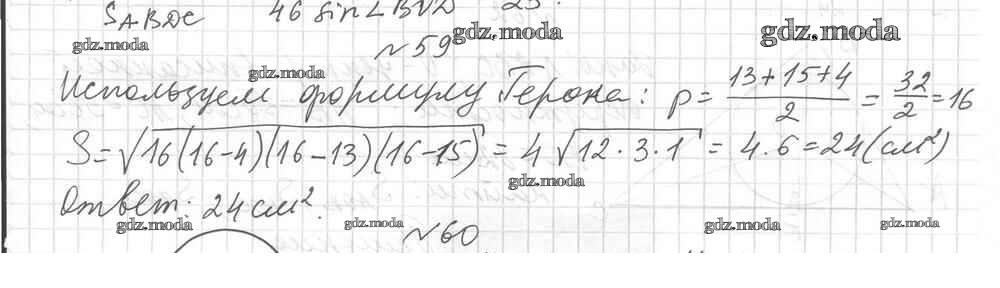 S ABDC 46 sin∠BVD 23.
gdz.moda gdz.moda gdz.moda
№59
gdz.moda
Используем формулу Герона: p = (13+15+4)/2 = 32/2 = 16
S = √(16(16-4)(16-13)(16-15)) = 4√(12·3·1) = 4·6 = 24 (см²)
gdz.moda
Ответ: 24 см².
gdz.moda gdz.moda gdz.moda gdz.moda
№60